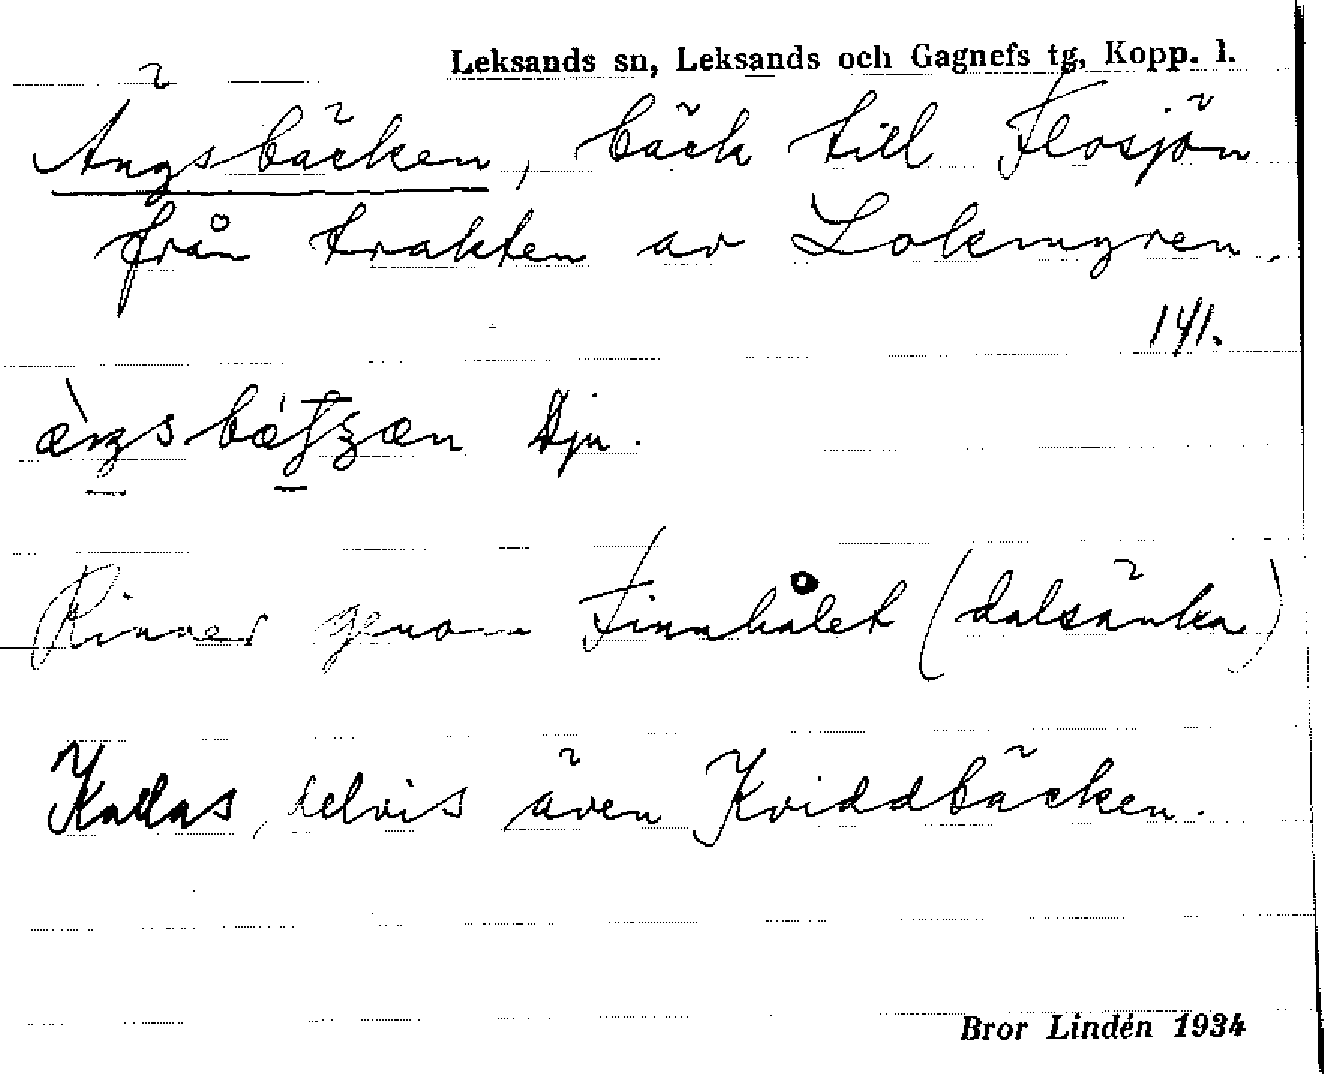 Leksands sn, Leksands och Gagnefs tg, Kopp. l.
Ängsbäcken, bäck till Flosjön
från trakten av Lokmyren.
141.
Dju.
Rinner genom Finnhålet (dalsänka)
Kallas, delvis även Kviddbäcken.
Bror Lindén 1934